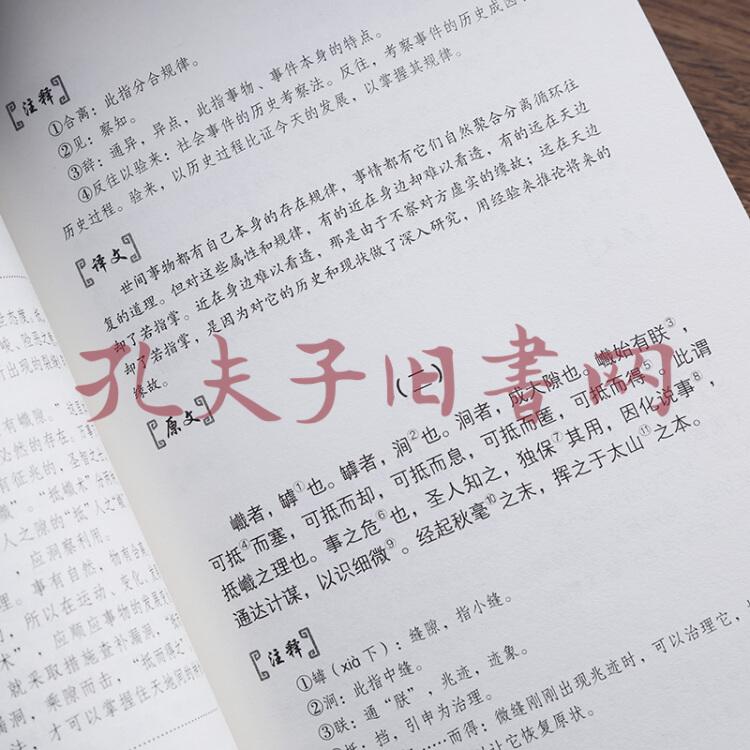 【注释】
①合离：此指分合规律。
②见：察知。
③辞：通异，异点，此指事物、事件本身的特点。
④反往以验来：社会事件的历史考察法。反往，考察事件的历史成因
历史过程。验来，以历史过程比证今天的发展，以掌握其规律。
【译文】
世间事物都有自己本身的存在规律，事情都有它们自然聚合分离循环往
复的道理。但对这些属性和规律，有的近在身边却难以看透，有的远在天边
却了若指掌。近在身边难以看透，那是由于不察对方虚实的缘故；远在天边
却了若指掌，是因为对它的历史和现状做了深入研究，用经验来推论将来的
缘故。
(二)
【原文】
巇者，罅①也。罅者，涧②也。涧者，成大隙也。巇始有朕③，
可抵④而塞，可抵而却，可抵而息，可抵而匿，可抵而得⑤。此谓
抵巇之理也。事之危⑥也，圣人知之，独保⑦其用，因化说事⑧，
通达计谋，以识细微⑨。经起秋毫⑩之末，挥之于太山⑪之本。
【注释】
①罅（xià下）：缝隙，指小缝。
②涧：此指中缝。
③朕：通“朕”，兆迹，迹象。
抵，挡，引申为治理。
……而得：微缝刚刚出现兆迹时，可以治理它，
让它恢复原状。
有巇隙。
必然的存在。
有征兆的，
人之隙的“抵”
，应洞察利用。
理。事有自然，物有合离
所以在运动、变化、
术”，应顺应事物的发展
就采取措施查补漏洞，
漏洞，乘隙而击，“抵而
法，才可以掌握住天地间的
孔夫子旧书网